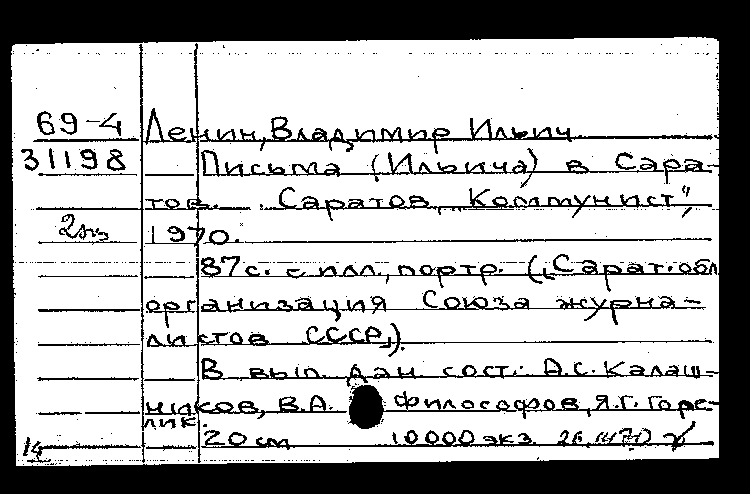 69-4 Ленин, Владимир Ильич
31198 Письма (Ильича) в Сара-
тов. Саратов, „Коммунист",
2 экз 1970.
87 с. с илл., портр. („Сарат. обл
организация Союза журна-
листов СССР„).
В вып. дан. сост.: А.С. Калаш-
ников, В.А. Философов, Я.Г. Горе-
лик.
14 20 см 10000 экз.